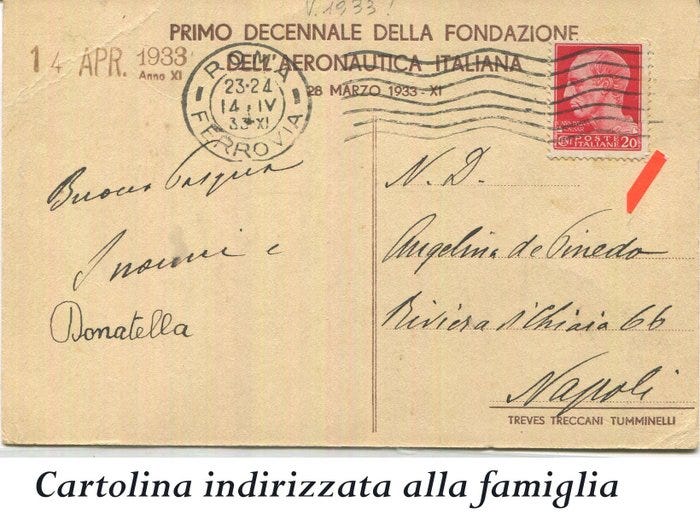 V. 1933!
PRIMO DECENNALE DELLA FONDAZIONE
DELL'AERONAUTICA ITALIANA
28 MARZO 1933 - XI
14 APR. 1933
Anno XI
ROMA
23·24
14 IV
33·XI
FERROVIA
POSTE
ITALIANE 20
CENT
Buona Pasqua
e
Donatella
N. D.
Angelina de Pinedo
Riviera di Chiaia 66
Napoli
TREVES TRECCANI TUMMINELLI
Cartolina indirizzata alla famiglia